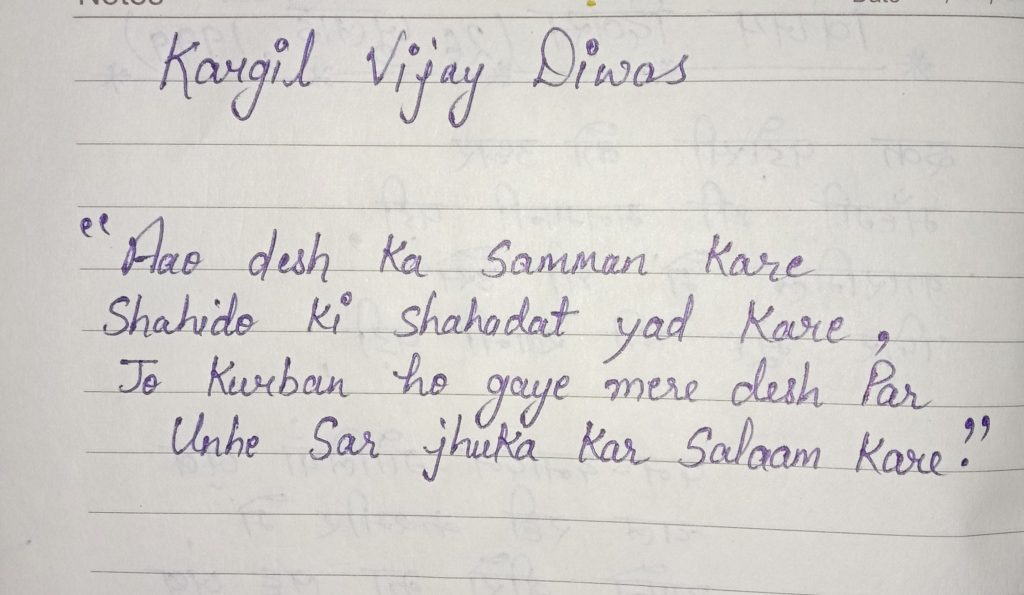 Kargil Vijay Diwas
"Aao desh Ka Samman Kare
Shahido Ki Shahadat yad Kare,
Jo Kurban ho gaye mere desh Par
Unhe Sar jhuka Kar Salaam Kare."